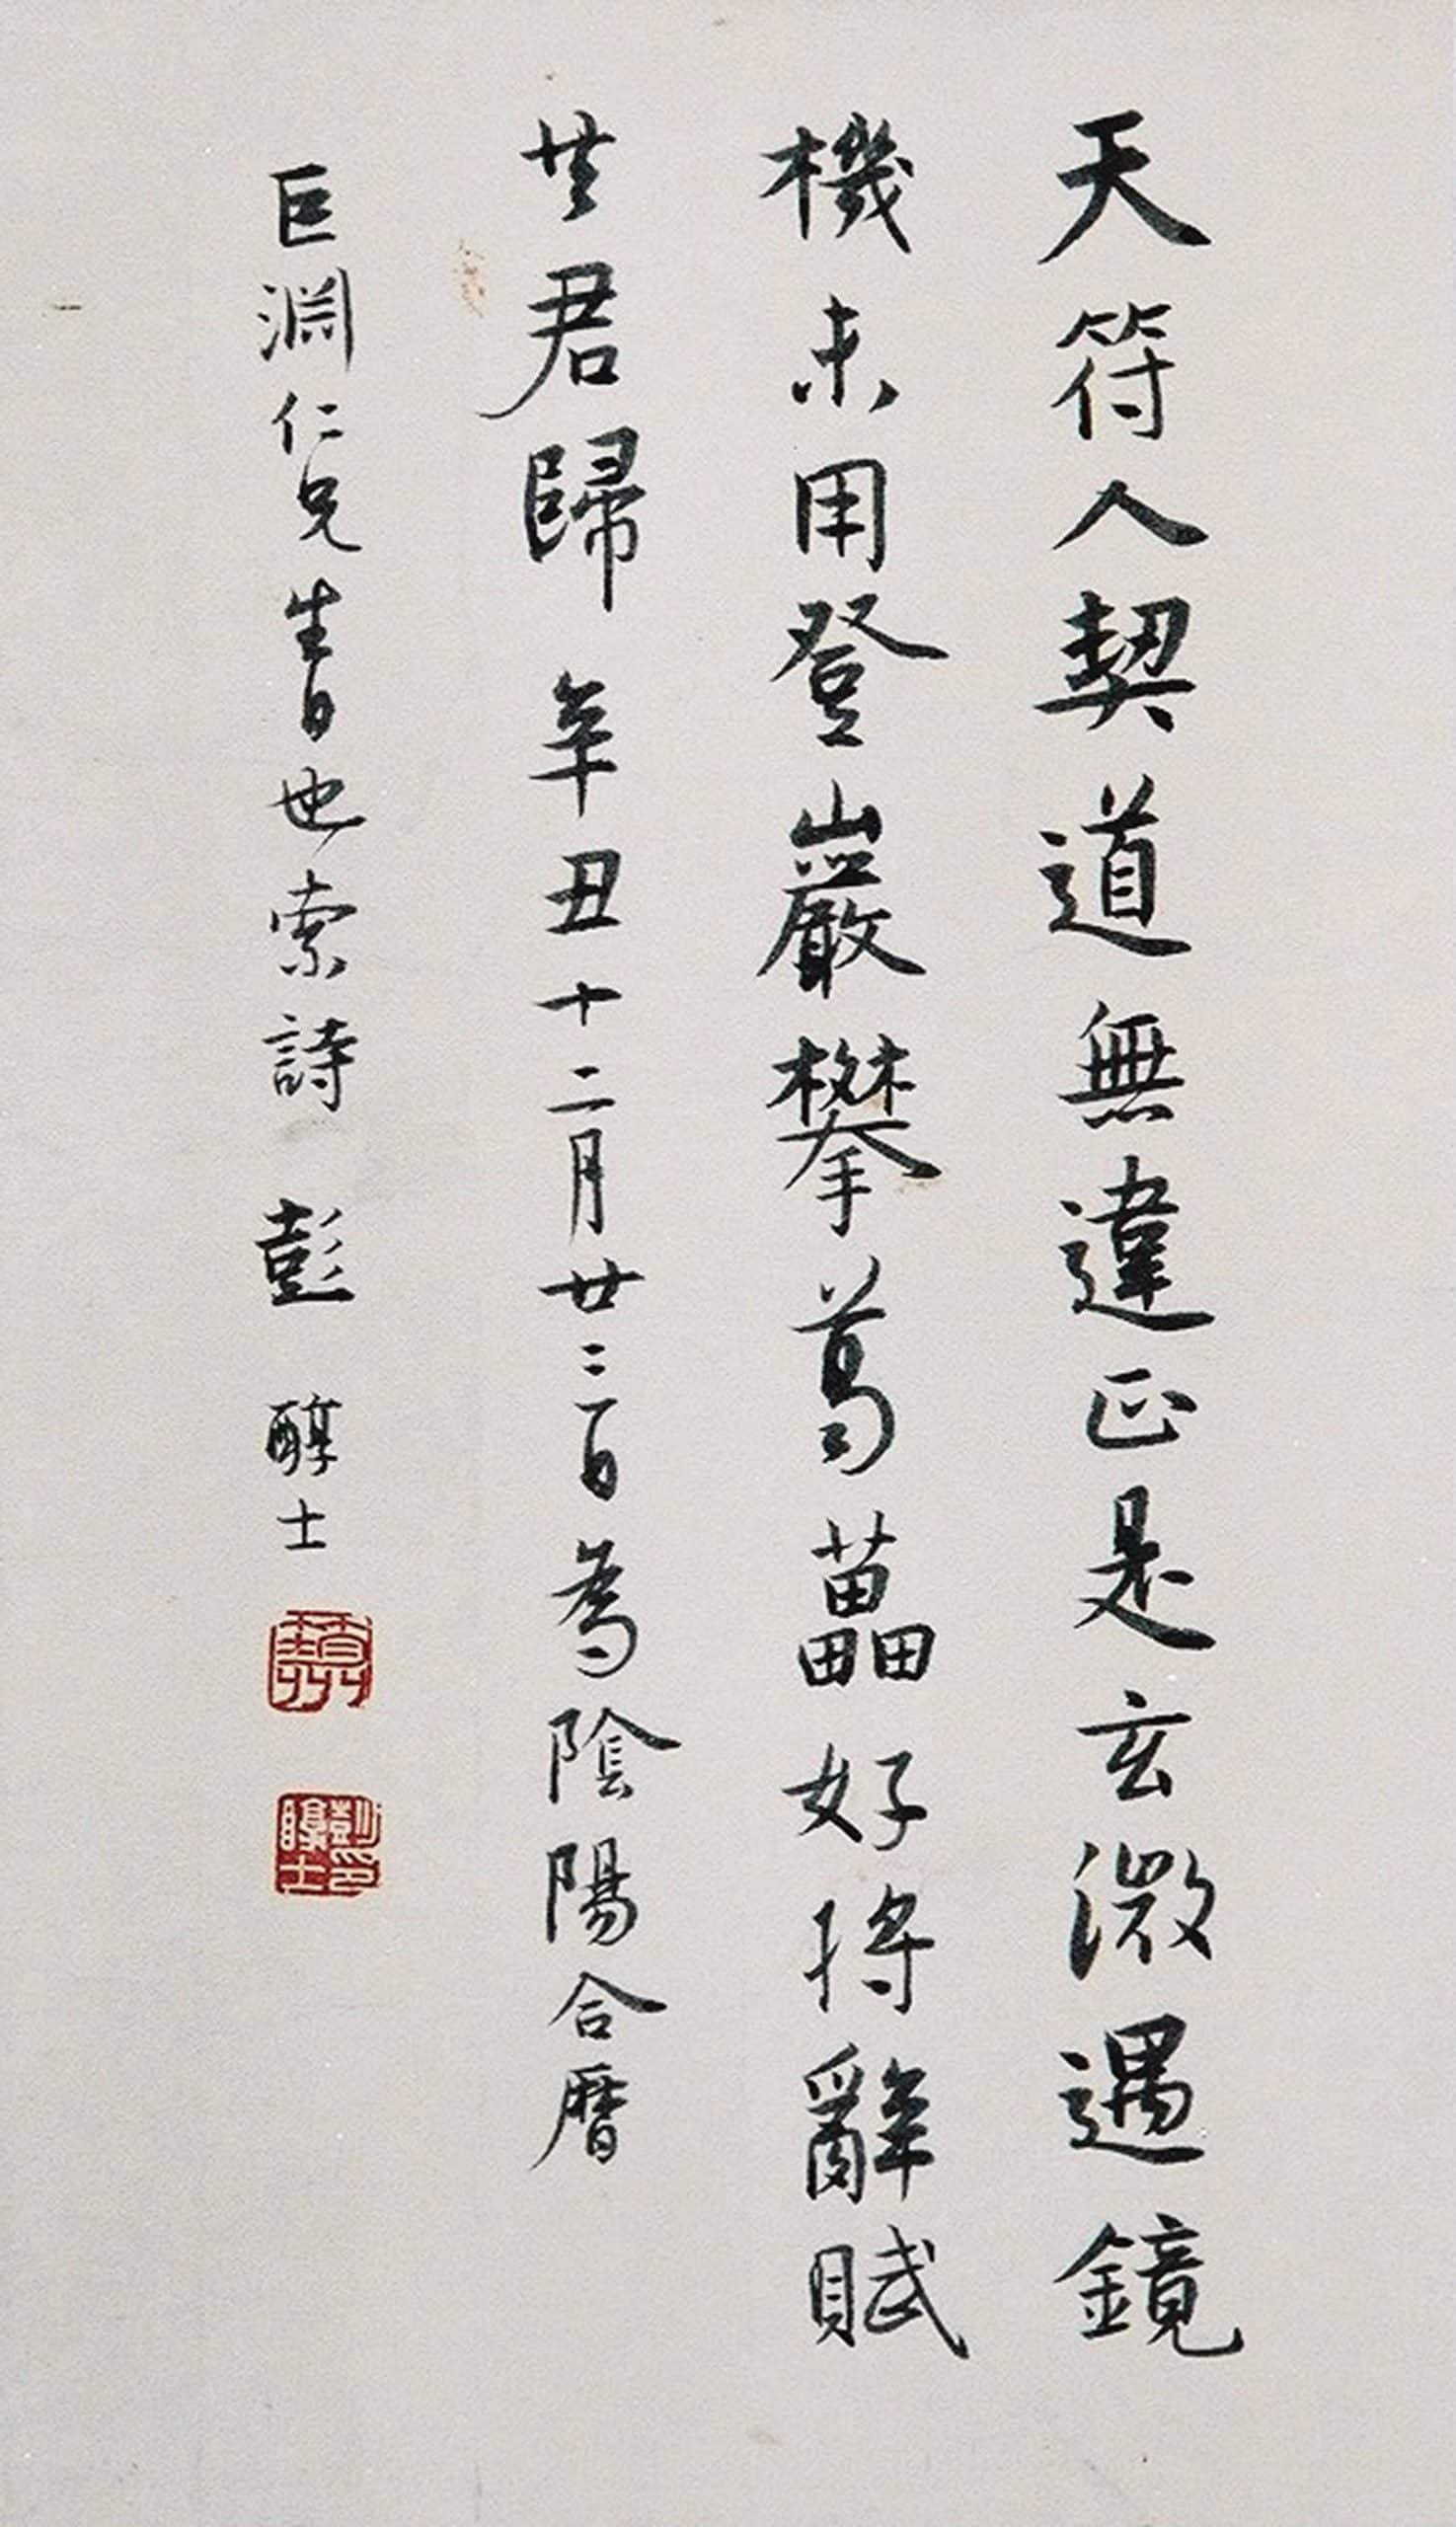 天符人契道無違正是玄微遇鏡
機未用登巖攀葛藟好將辭賦
共君歸 辛丑十二月廿三日為陰陽合曆
巨淵仁兄生日也索詩 彭醇士
彭印醇士